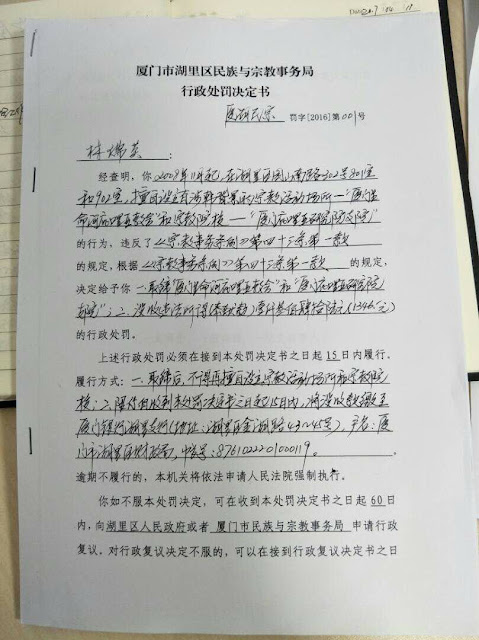 厦门市湖里区民族与宗教事务局
行政处罚决定书
厦湖民宗 罚字[2016]第001号
林 英 :
经查明，你2009年11月起，在湖里区 南路 801室
和902室，擅自设立 背景的宗教活动场所一“厦门生
命河 教会”和宗教院校一“厦门 研究院 院”
的行为，违反了《宗教事务条例》第四十三条第一款
的规定，根据《宗教事务条例》第四十三条第一款 的规定，
决定给予你 一、取缔“厦门生命河 教会”和“厦门 研究院
院”；二、没收违法所得（ 款） (1346元)
的行政处罚。
上述行政处罚必须在接到本处罚决定书之日起15日内履行，
履行方式：一、取缔后，不得再擅自设立宗教活动场所和宗教院
校；二、限你自收到本处罚决定书之日起15日内，将没收款缴至
厦门银行湖里支行（地址：湖里区金湖路43-45号），户名：厦
门市湖里区财政局，帐号：8761022201000119。
逾期不履行的，本机关将依法申请人民法院强制执行。
你如不服本处罚决定，可在收到本处罚决定书之日起 60 日
内，向湖里区人民政府或者 厦门市民族与宗教事务局 申请行政
复议。对行政复议决定不服的，可以在接到行政复议决定书之日